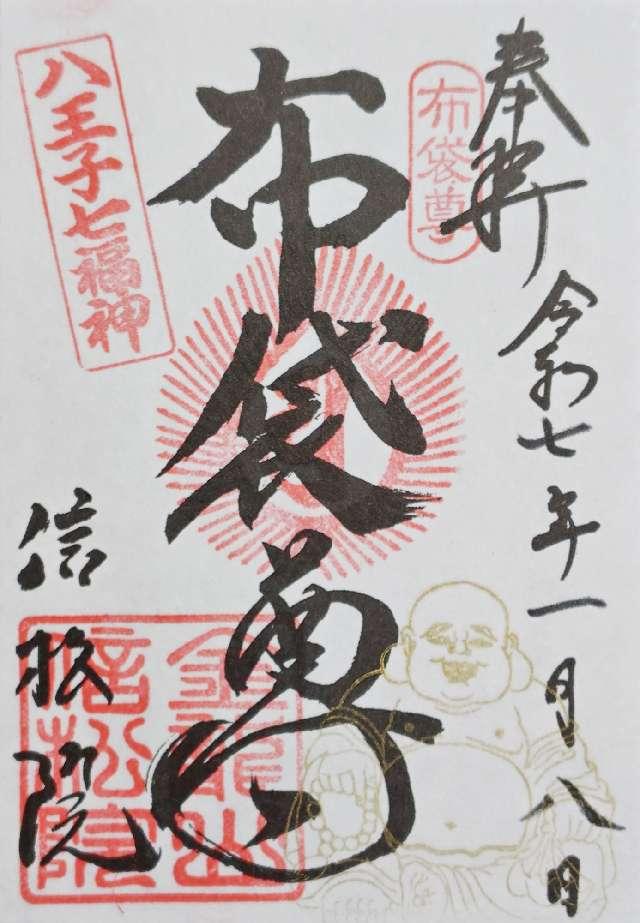 奉拝
令和七年一月八日
布袋尊
布袋尊
八王子七福神
信松院
金龍山
信松院